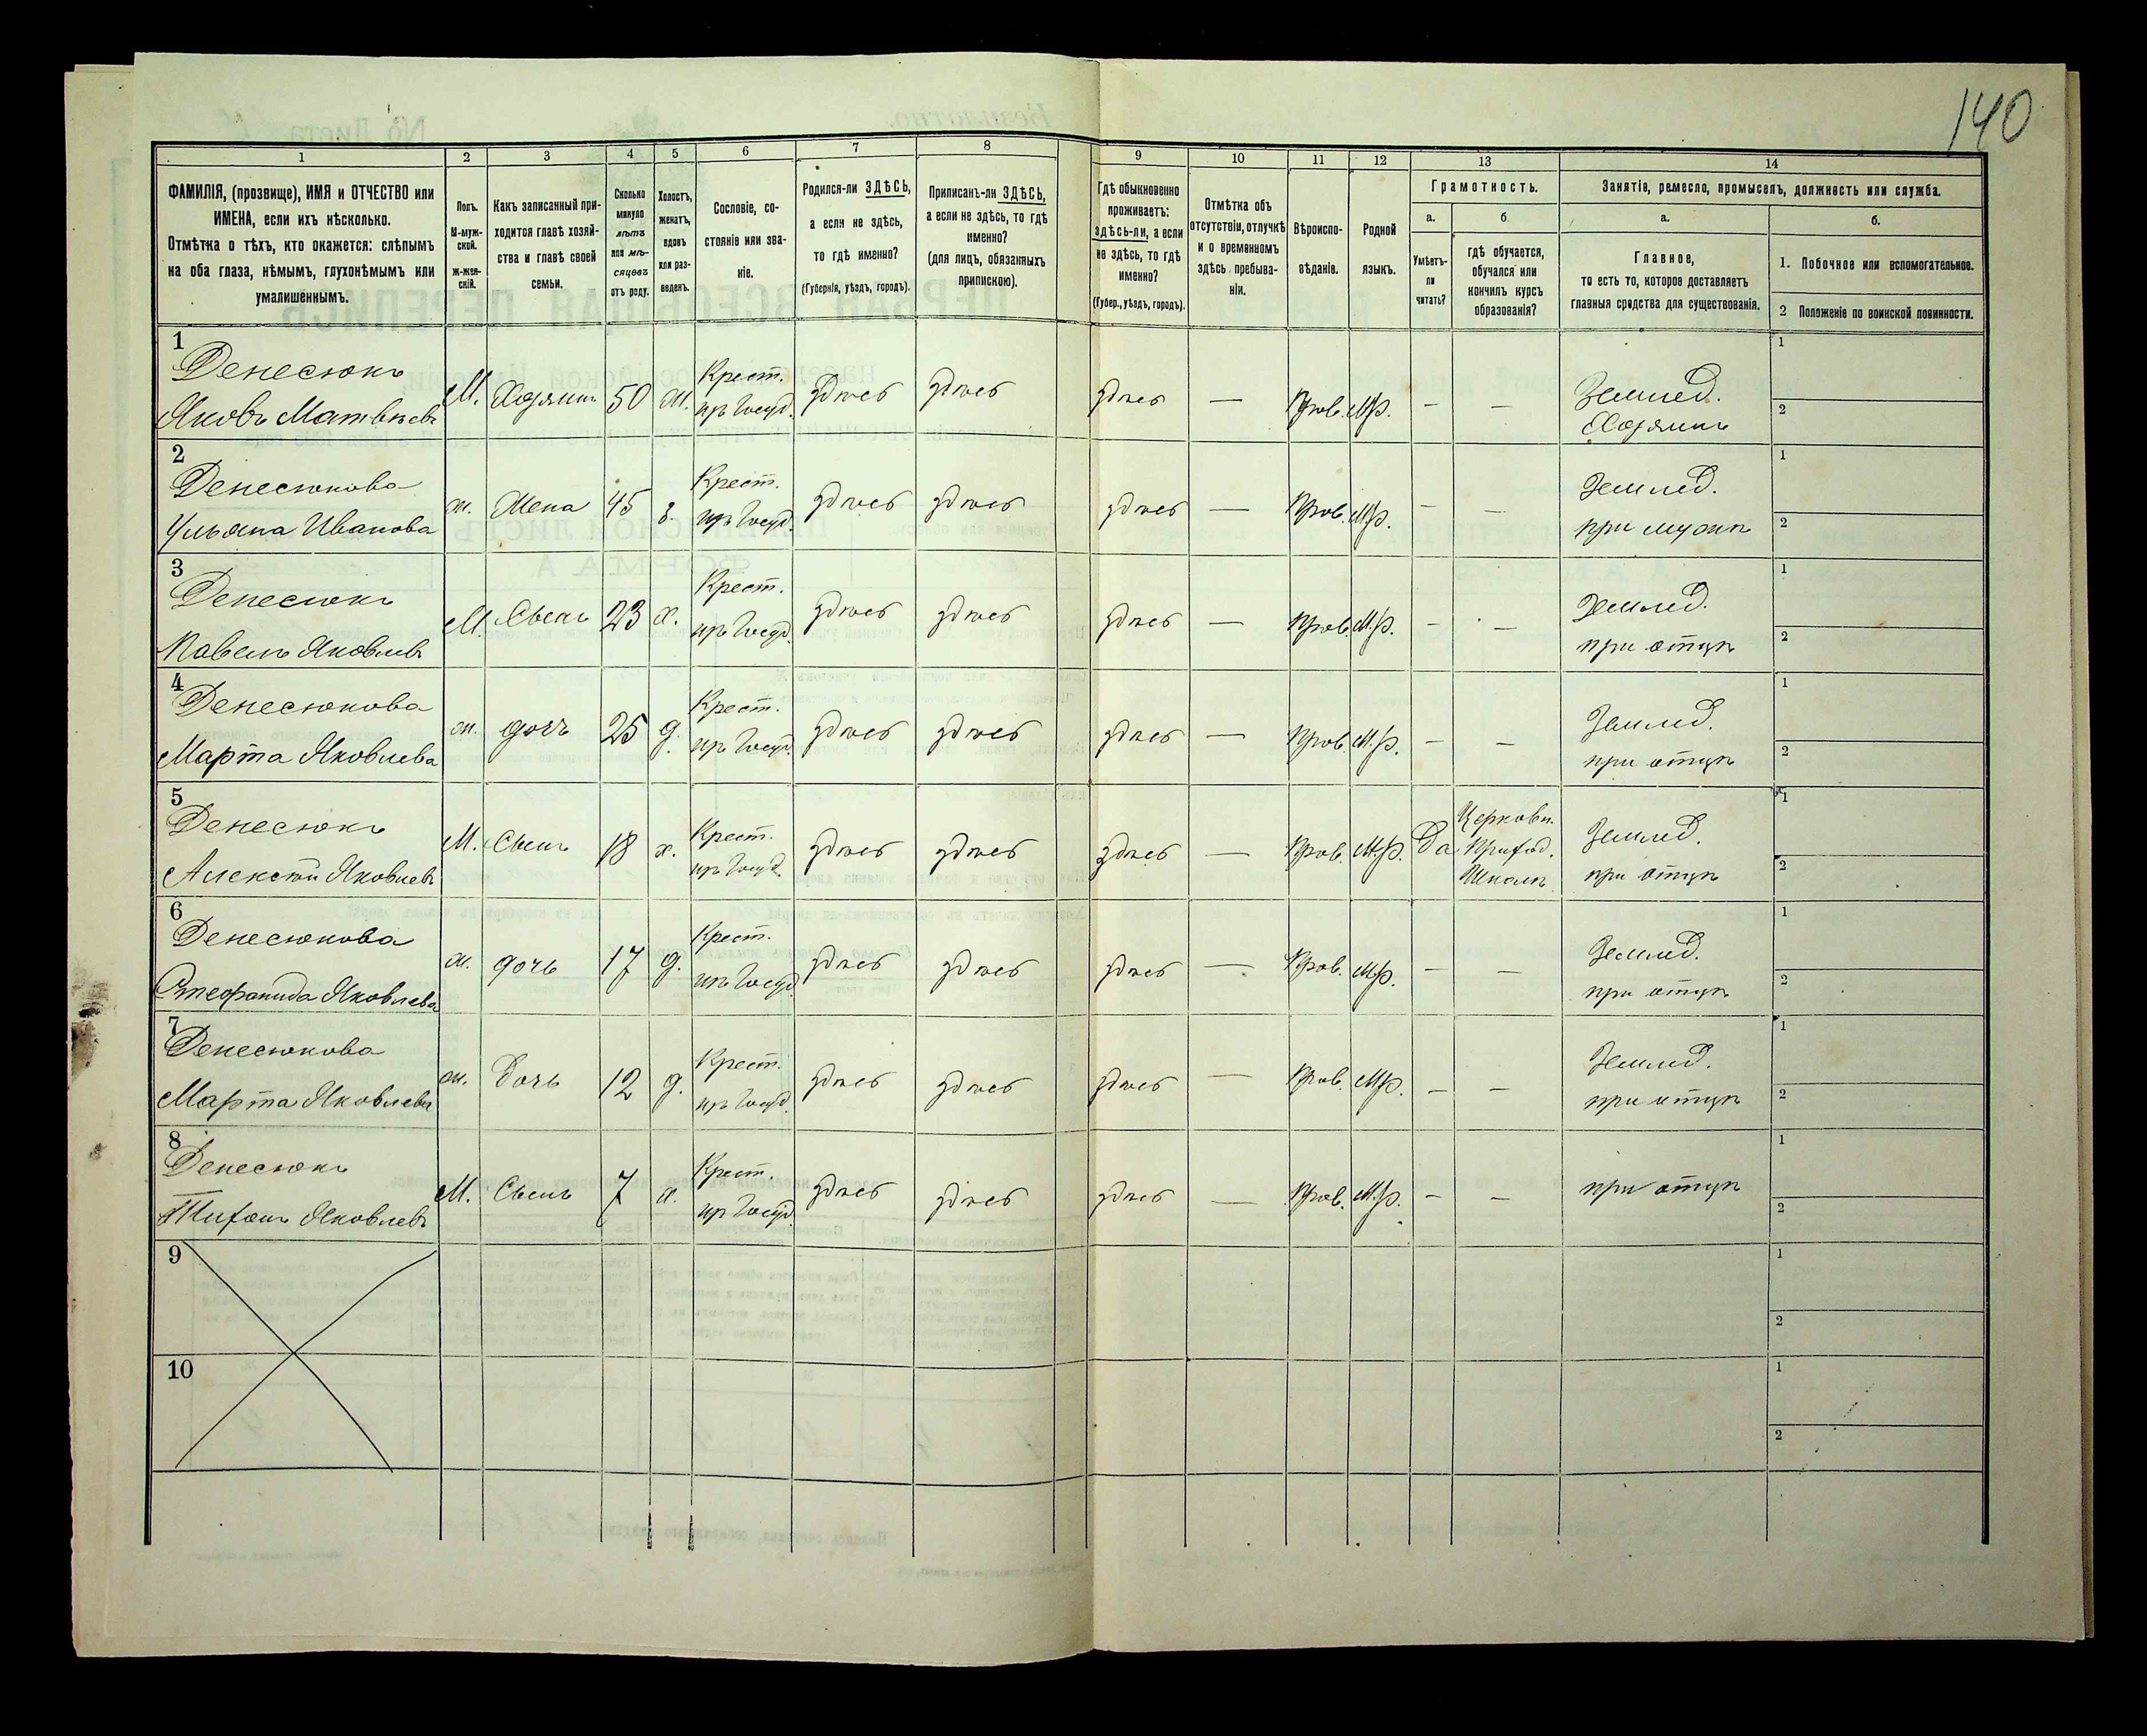 140
1
2
3
4
5
6
7
8
9
10
11
12
13
14
ФАМИЛІЯ, (прозвище), ИМЯ и ОТЧЕСТВО или
ИМЕНА, если ихъ нѣсколько.
Отмѣтка о тѣхъ, кто окажется: слѣпымъ
на оба глаза, нѣмымъ, глухонѣмымъ или
умалишеннымъ.
Полъ.
М-муж-
ской.
ж-жен-
скій.
Какъ записанный при-
ходится главѣ хозяй-
ства и главѣ своей
семьи.
Сколько
минуло
лѣтъ
или мѣ-
сяцевъ
отъ роду.
Холостъ,
женатъ,
вдовъ
или раз-
веденъ.
Сословіе, со-
стояніе или зва-
ніе.
Родился-ли ЗДѢСЬ,
а если не здѣсь,
то гдѣ именно?
(Губернія, уѣздъ, городъ).
Приписанъ-ли ЗДѢСЬ,
а если не здѣсь, то гдѣ
именно?
(для лицъ, обязанныхъ
припискою).
Гдѣ обыкновенно
проживаетъ:
здѣсь-ли, а если
не здѣсь, то гдѣ
именно?
(Губер., уѣздъ, городъ).
Отмѣтка объ
отсутствіи, отлучкѣ
и о временномъ
здѣсь пребыва-
ніи.
Вѣроиспо-
вѣданіе.
Родной
языкъ.
Грамотность.
а.
Умѣетъ-
ли
читать?
б.
гдѣ обучается,
обучался или
кончилъ курсъ
образованія?
Занятіе, ремесло, промыселъ, должность или служба.
а.
Главное,
то есть то, которое доставляетъ
главныя средства для существованія.
б.
1. Побочное или вспомогательное.
2 Положеніе по воинской повинности.
1
Денесюкъ
Яковъ Матвѣевъ
М. Хозяинъ 50 ж. Крест. изъ Госуд. здѣсь здѣсь здѣсь — Прав. М.р. — — Землед. Хозяинъ
1
2
2
Денесюкова
Ульяна Иванова
ж. Жена 45 з. Крест. изъ Госуд. здѣсь здѣсь здѣсь — Прав. М.р. — — Землед. при мужѣ
1
2
3
Денесюкъ
Павелъ Яковлевъ
М. Сынъ 23 х. Крест. изъ Госуд. здѣсь здѣсь здѣсь — Прав. М.р. — — Землед. при отцѣ
1
2
4
Денесюкова
Марта Яковлева
ж. дочь 25 д. Крест. изъ Госуд. здѣсь здѣсь здѣсь — Прав. М.р. — — Землед. при отцѣ
1
2
5
Денесюкъ
Алексѣй Яковлевъ
М. Сынъ 18 х. Крест. изъ Госуд. здѣсь здѣсь здѣсь — Прав. М.р. Да Церковн. Приход. Школѣ Землед. при отцѣ
1
2
6
Денесюкова
Стефанида Яковлева
ж. дочь 17 д. Крест. изъ Госуд. здѣсь здѣсь здѣсь — Прав. М.р. — — Землед. при отцѣ
1
2
7
Денесюкова
Марта Яковлева
ж. Дочь 12 д. Крест. изъ Госуд. здѣсь здѣсь здѣсь — Прав. М.р. — — Землед. при отцѣ
1
2
8
Денесюкъ
Тихонъ Яковлевъ
М. Сынъ 7 х. Крест. изъ Госуд. здѣсь здѣсь здѣсь — Прав. М.р. — — при отцѣ
1
2
9
1
2
10
1
2